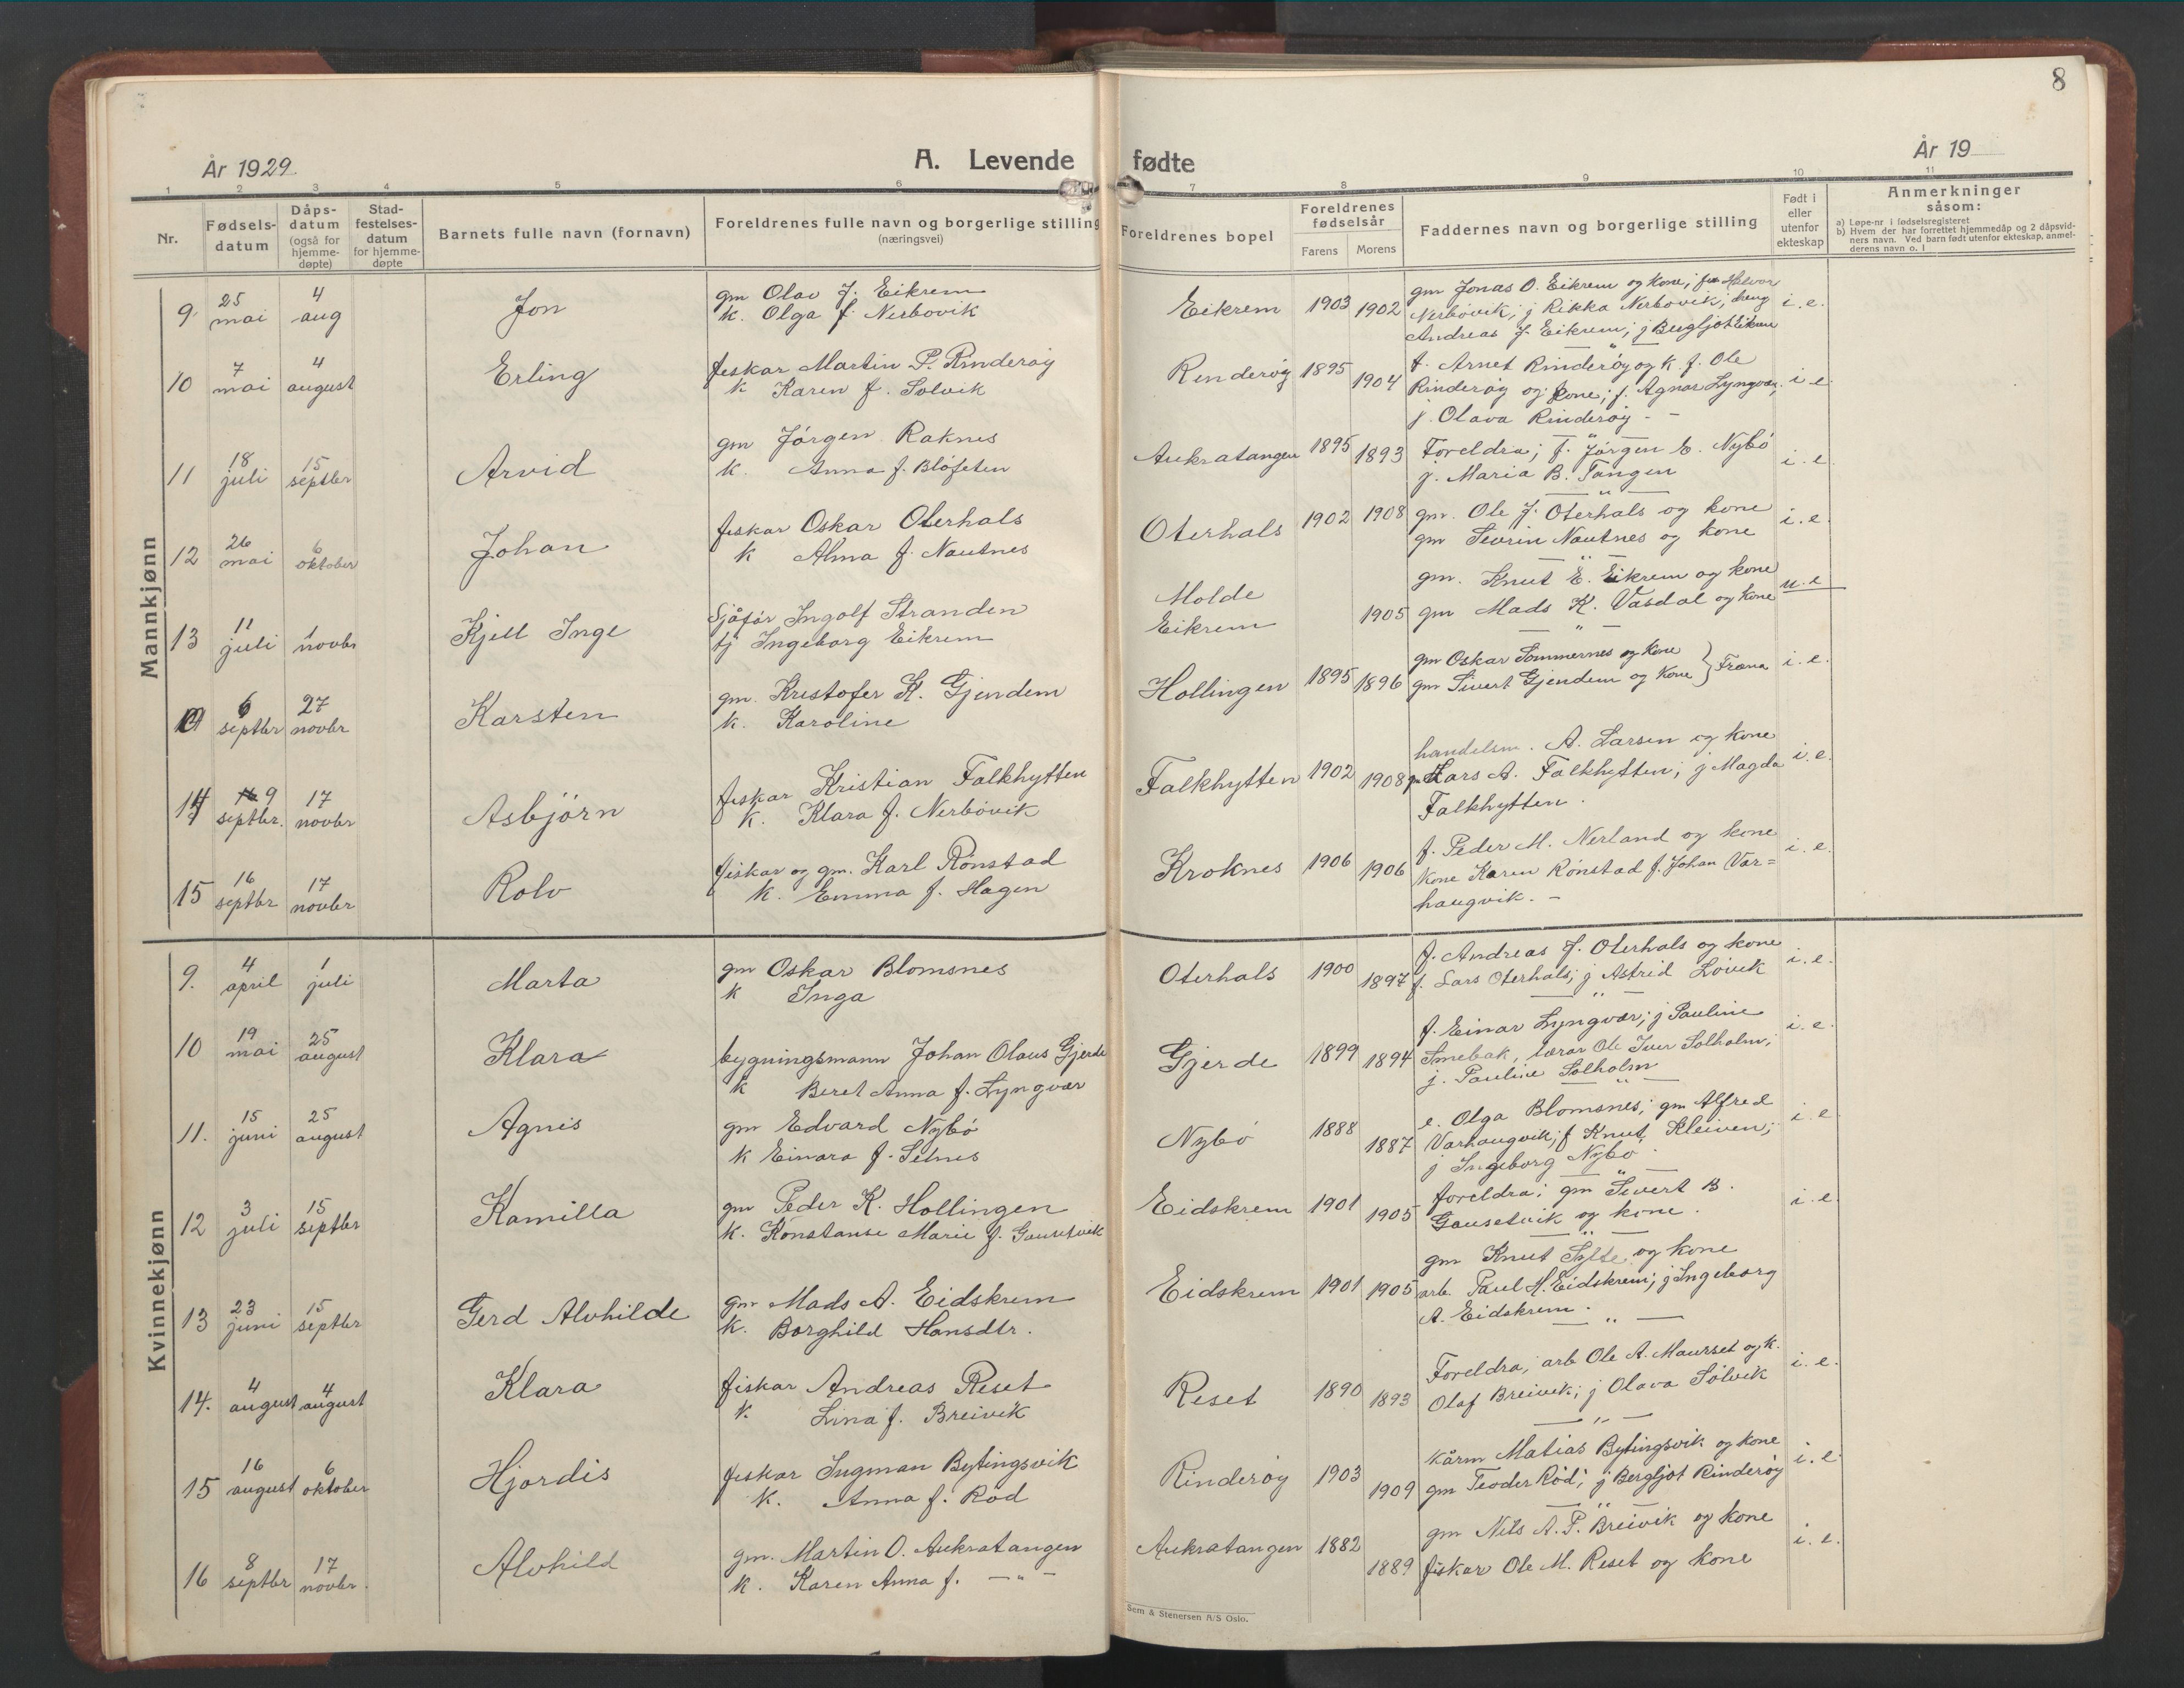 8
År 1929.
A. Levende fødte
År 19
1 2 3 4 5 6 7 8 9 10 11
Nr.
Fødsels-
datum
Dåps-
datum
(også for
hjemme-
døpte)
Stad-
festelses-
datum
for hjemme-
døpte
Barnets fulle navn (fornavn)
Foreldrenes fulle navn og borgerlige stilling
(næringsvei)
Foreldrenes bopel
Foreldrenes
fødselsår
Farens Morens
Faddernes navn og borgerlige stilling
Født i
eller
utenfor
ekteskap
Anmerkninger
såsom:
a) Løpe-nr i fødselsregisteret
b) Hvem der har forrettet hjemmedåp og 2 dåpsvid-
ners navn. Ved barn født utenfor ekteskap, anmel-
derens navn o. l
Mannkjønn
9 25 mai 4 aug Jon
gm Olav J. Eikrem
k. Olga f. Nerbovik
Eikrem 1903 1902
gm Jonas O. Eikrem og kone; Halvor
Nerbövik; j Rikka Nerbovik; dreng
Andreas J. Eikrem; j Bergljot Eikrem
i. e.
10 7 mai 4 august Erling
fiskar Martin P. Rinderöy
k Karen f. Solvik
Renderöy 1895 1904
f. Arnet Rinderöy og k. f. Ole
Rinderöy og kone; f. Agnar Lyngvær,
j. Olava Rinderöy -
i e.
11 18 juli 15 septbr Arvid
gm Jörgen Raknes
k. Anna f. Blöfeten
Aukratangen 1895 1893
Foreldra; f. Jörgen E. Nybö
j. Maria B. Tangen
i. e.
12 26 mai 6 oktober Johan
fiskar Oskar Oterhals
k Alma f. Nautnes
Oterhals 1902 1908
gm. Ole J. Oterhals og kone
gm Sevrin Nautnes og kone
i. e.
13 11 juli 1 novbr Kjell Inge
Sjåför Ingolf Stranden
tj Ingeborg Eikrem
Molde
Eikrem 1905
gm. Knut E. Eikrem og kone
gm Mads K. Vasdal og kone
u. e
6 septbr 27 novbr Karsten
gm. Kristofer K. Gjendem
k. Karoline
Hollingen 1895 1896
gm Oskar Sommernes og kone
gm Sivert Gjendem og kone } Fræna
i. e.
14 9 septbr. 17 novbr Asbjörn
fiskar Kristian Falkhytten
k. Klara f. Nerbövik
Falkhytten 1902 1908
handelsm. A. Larsen og kone
gm Lars A. Falkhytten; j Magda
Falkhytten.
i. e.
15 16 septbr 17 novbr Rolv
fiskar og gm. Karl Rönstad
k. Emma f. Hagen
Kroknes 1906 1906
f. Peder M. Nerland og kone
kone Karen Rönstad f. Johan Var=
haugvik. -
i. e.
Kvinnekjønn
9. 4 april 1 juli Marta
gm Oskar Blomsnes
k Inga
Oterhals 1900 1897
f. Andreas J. Oterhals og kone
f. Lars Oterhals; j Astrid Lövik
i. e.
10 19 mai 25 august Klara
bygningsmann Johan Olaus Gjerde
k Beret Anna f. Lyngvær
Gjerde 1899 1894
f. Einar Lyngvær; j Pauline
Smebak, lærar Ole Iver Solholm;
j. Pauline Solholm
i. e.
11. 15 juni 25 august Agnis
gm Edvard Nybö
k Einara f. Selnes
Nybö 1888 1887
e. Olga Blomsnes; gm Alfred
Varhaugvik; f Knut Kleiven;
j Ingeborg Nybö.
i. e
12 3 juli 15 septbr Kamilla
gm Peder K. Hollingen
k. Konstanse Marie f. Gausetvik
Eidskrem 1901 1905
foreldra; gm Sivert B.
Gausetvik og kone.
i. e.
13 23 juni 15 septbr Gerd Alvhilde
gm Mads A. Eidskrem
k. Borghild Hansdtr.
Eidskrem 1901 1905
gm Knut Sylte og kone
arb. Paul H. Eidskrem; j Ingeborg
A. Eidskrem.
14. 4 august 4 august Klara
fiskar Andreas Reset
k. Lina f. Breivik
Reset 1890 1893
Foreldra; arb Ole A. Maurset og k.
Olaf Breivik; j Olava Solvik
i. e.
15 16 august 6 oktober Hjordis
fiskar Ingman Bytingsvik
k. Anna f. Rod
Rinderöy 1903 1909
kårm Matias Bytingsvik og kone
gm Teoder Rød; j Bergljot Rinderöy
i. e.
16 8 septbr 17 novbr. Alvhild
gm. Martin O. Aukratangen
k. Karen Anna f. — " —
Aukratangen 1882 1889
gm Nils A. P. Breivik og kone
fiskar Ole M. Reset og kone
i. e.
Sem & Stenersen A/S Oslo.